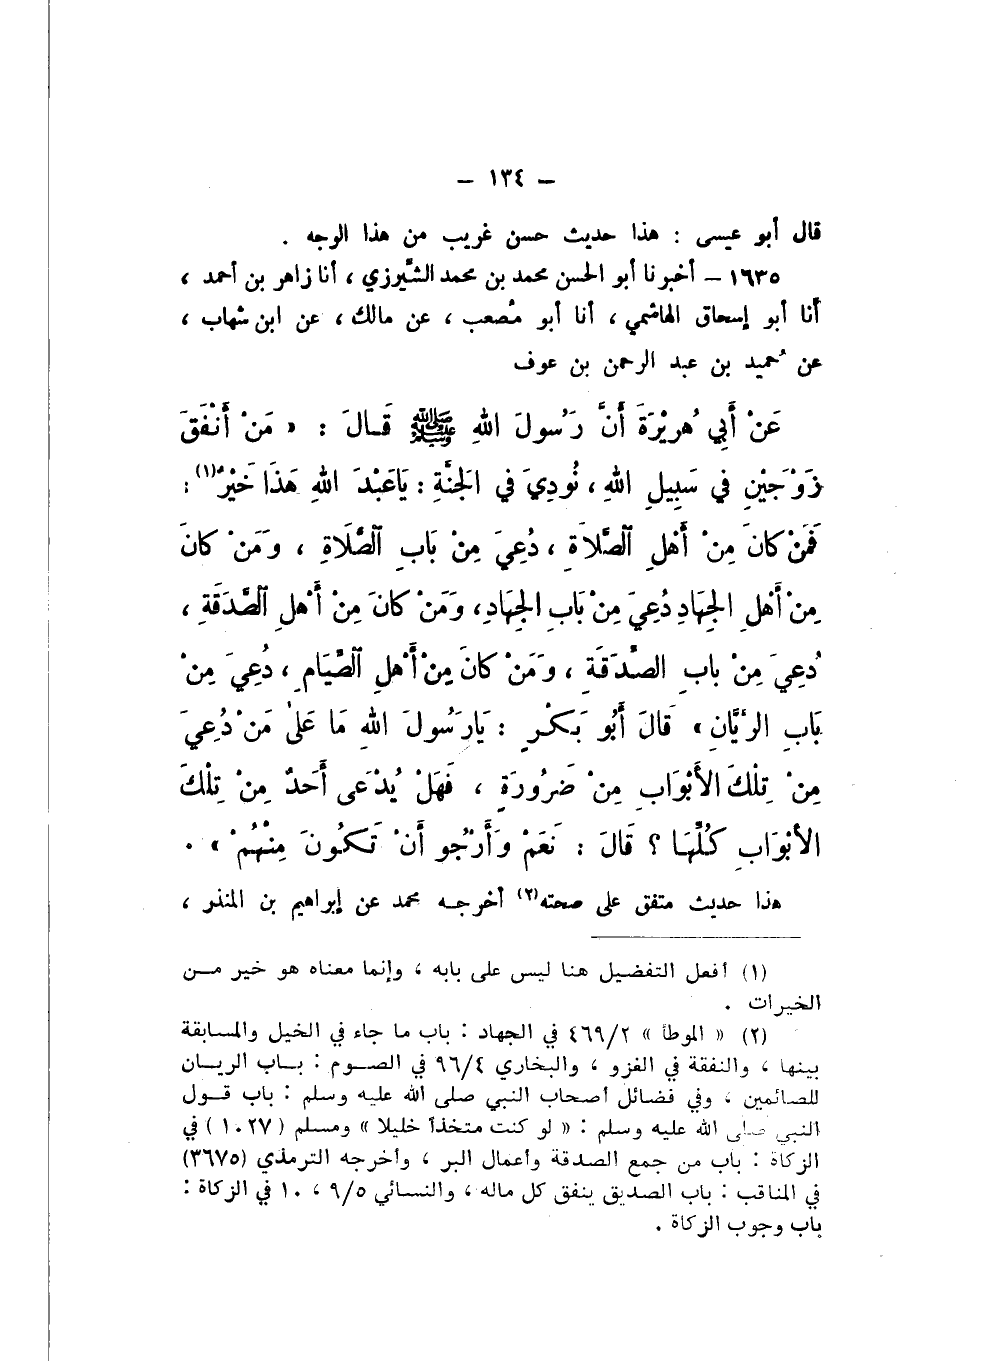 – ١٣٤ –
قال أبو عيسى : هذا حديث حسن غريب من هذا الوجه .
١٦٣٥ – أخبرنا أبو الحسن محمد بن محمد الشِّيرزي ، أنا زاهر بن أحمد ،
أنا أبو إسحاق الهاشمي ، أنا أبو مُصعب ، عن مالك ، عن ابن شهاب ،
عن حُميد بن عبد الرحمن بن عوف
عَنْ أَبِي هُرَيْرَةَ أَنَّ رَسُولَ اللهِ ﷺ قَالَ : « مَنْ أَنْفَقَ
زَوْجَيْنِ فِي سَبِيلِ اللهِ ، نُودِيَ فِي الجَنَّةِ : يَاعَبْدَ اللهِ هَذَا خَيْرٌ(١) :
فَمَنْ كَانَ مِنْ أَهْلِ الصَّلَاةِ ، دُعِيَ مِنْ بَابِ الصَّلَاةِ ، وَمَنْ كَانَ
مِنْ أَهْلِ الجِهَادِ دُعِيَ مِنْ بَابِ الجِهَادِ ، وَمَنْ كَانَ مِنْ أَهْلِ الصَّدَقَةِ ،
دُعِيَ مِنْ بابِ الصَّدَقَةِ ، وَمَنْ كَانَ مِنْ أَهْلِ الصِّيَامِ ، دُعِيَ مِنْ
بَابِ الرَّيَّانِ » قَالَ أَبُو بَكْرٍ : يَارَسُولَ اللهِ مَا عَلَىٰ مَنْ دُعِيَ
مِنْ تِلْكَ الأَبْوَابِ مِنْ ضَرُورَةٍ ، فَهَلْ يُدْعَى أَحَدٌ مِنْ تِلْكَ
الأَبْوَابِ كُلِّهَا ؟ قَالَ : نَعَمْ وَأَرْجُو أَنْ تَكُونَ مِنْهُمْ » .
هذا حديث متفق على صحته(٢) أخرجه محمد عن إبراهيم بن المنذر ،
(١) أفعل التفضيل هنا ليس على بابه ، وإنما معناه هو خير من
الخيرات .
(٢) « الموطأ » ٤٦٩/٢ في الجهاد : باب ما جاء في الخيل والمسابقة
بينها ، والنفقة في الغزو ، والبخاري ٩٦/٤ في الصوم : باب الريان
للصائمين ، وفي فضائل أصحاب النبي صلى الله عليه وسلم : باب قول
النبي صلى الله عليه وسلم : « لو كنت متخذاً خليلا » ومسلم (١٠٢٧) في
الزكاة : باب من جمع الصدقة وأعمال البر ، وأخرجه الترمذي (٣٦٧٥)
في المناقب : باب الصديق ينفق كل ماله ، والنسائي ٩/٥ ، ١٠ في الزكاة :
باب وجوب الزكاة .